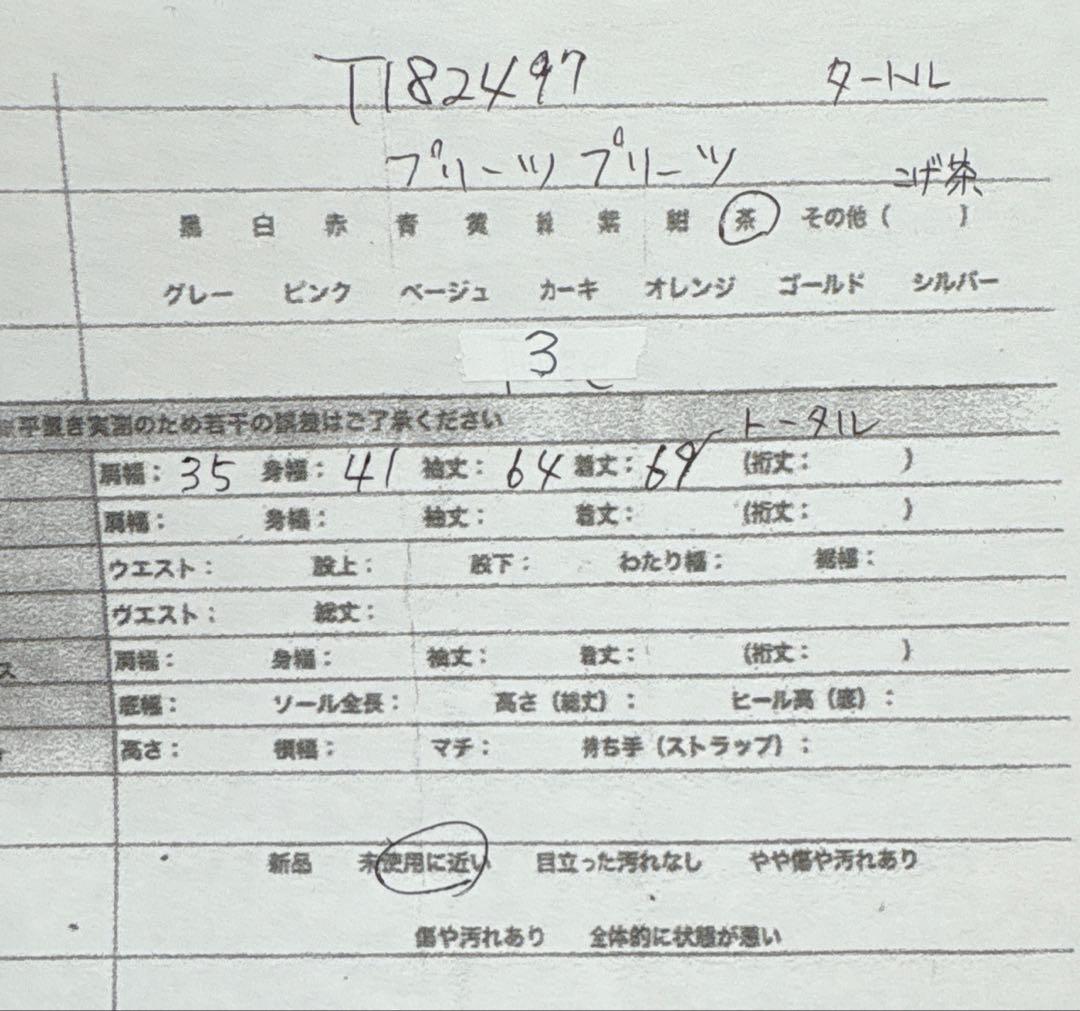 T182497 タートル
プリーツプリーツ こげ茶
黒 白 赤 青 黄 緑 紫 紺 茶 その他（ ）
グレー ピンク ベージュ カーキ オレンジ ゴールド シルバー
3
平置き実測のため若干の誤差はご了承ください トータル
肩幅：35 身幅：41 袖丈：64 着丈：69 （裄丈： ）
肩幅： 身幅： 袖丈： 着丈： （裄丈： ）
ウエスト： 股上： 股下： わたり幅： 裾幅：
ウエスト： 総丈：
ス 肩幅： 身幅： 袖丈： 着丈： （裄丈： ）
底幅： ソール全長： 高さ（総丈）： ヒール高（底）：
高さ： 横幅： マチ： 持ち手（ストラップ）：
新品 未使用に近い 目立った汚れなし やや傷や汚れあり
傷や汚れあり 全体的に状態が悪い